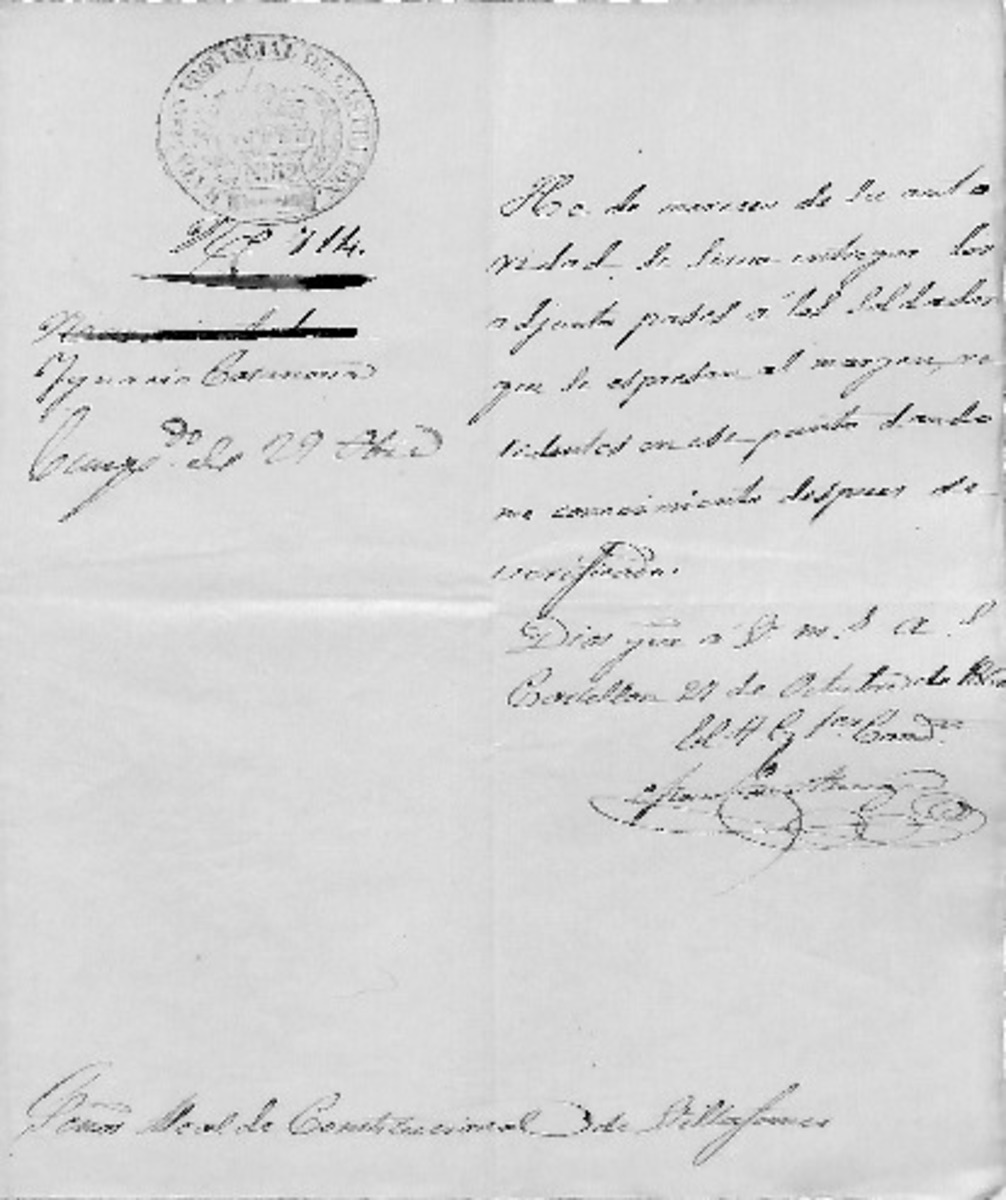 PROVINCIAL DE CASTELLON
Nº 714.
Ygnacio Casanova
Cumpdo. el 29
He de merecer de su auto
ridad se sirva entregar los
adjuntos pases a los soldados
que se espresan al margen, re
sidentes en ese punto dando
me conocimiento despues de
verificado.
Dios gue a V. m. s a. s
Castellon 27 de Octubre de
El Comdte
Señor Alcalde Constitucional de Villafames